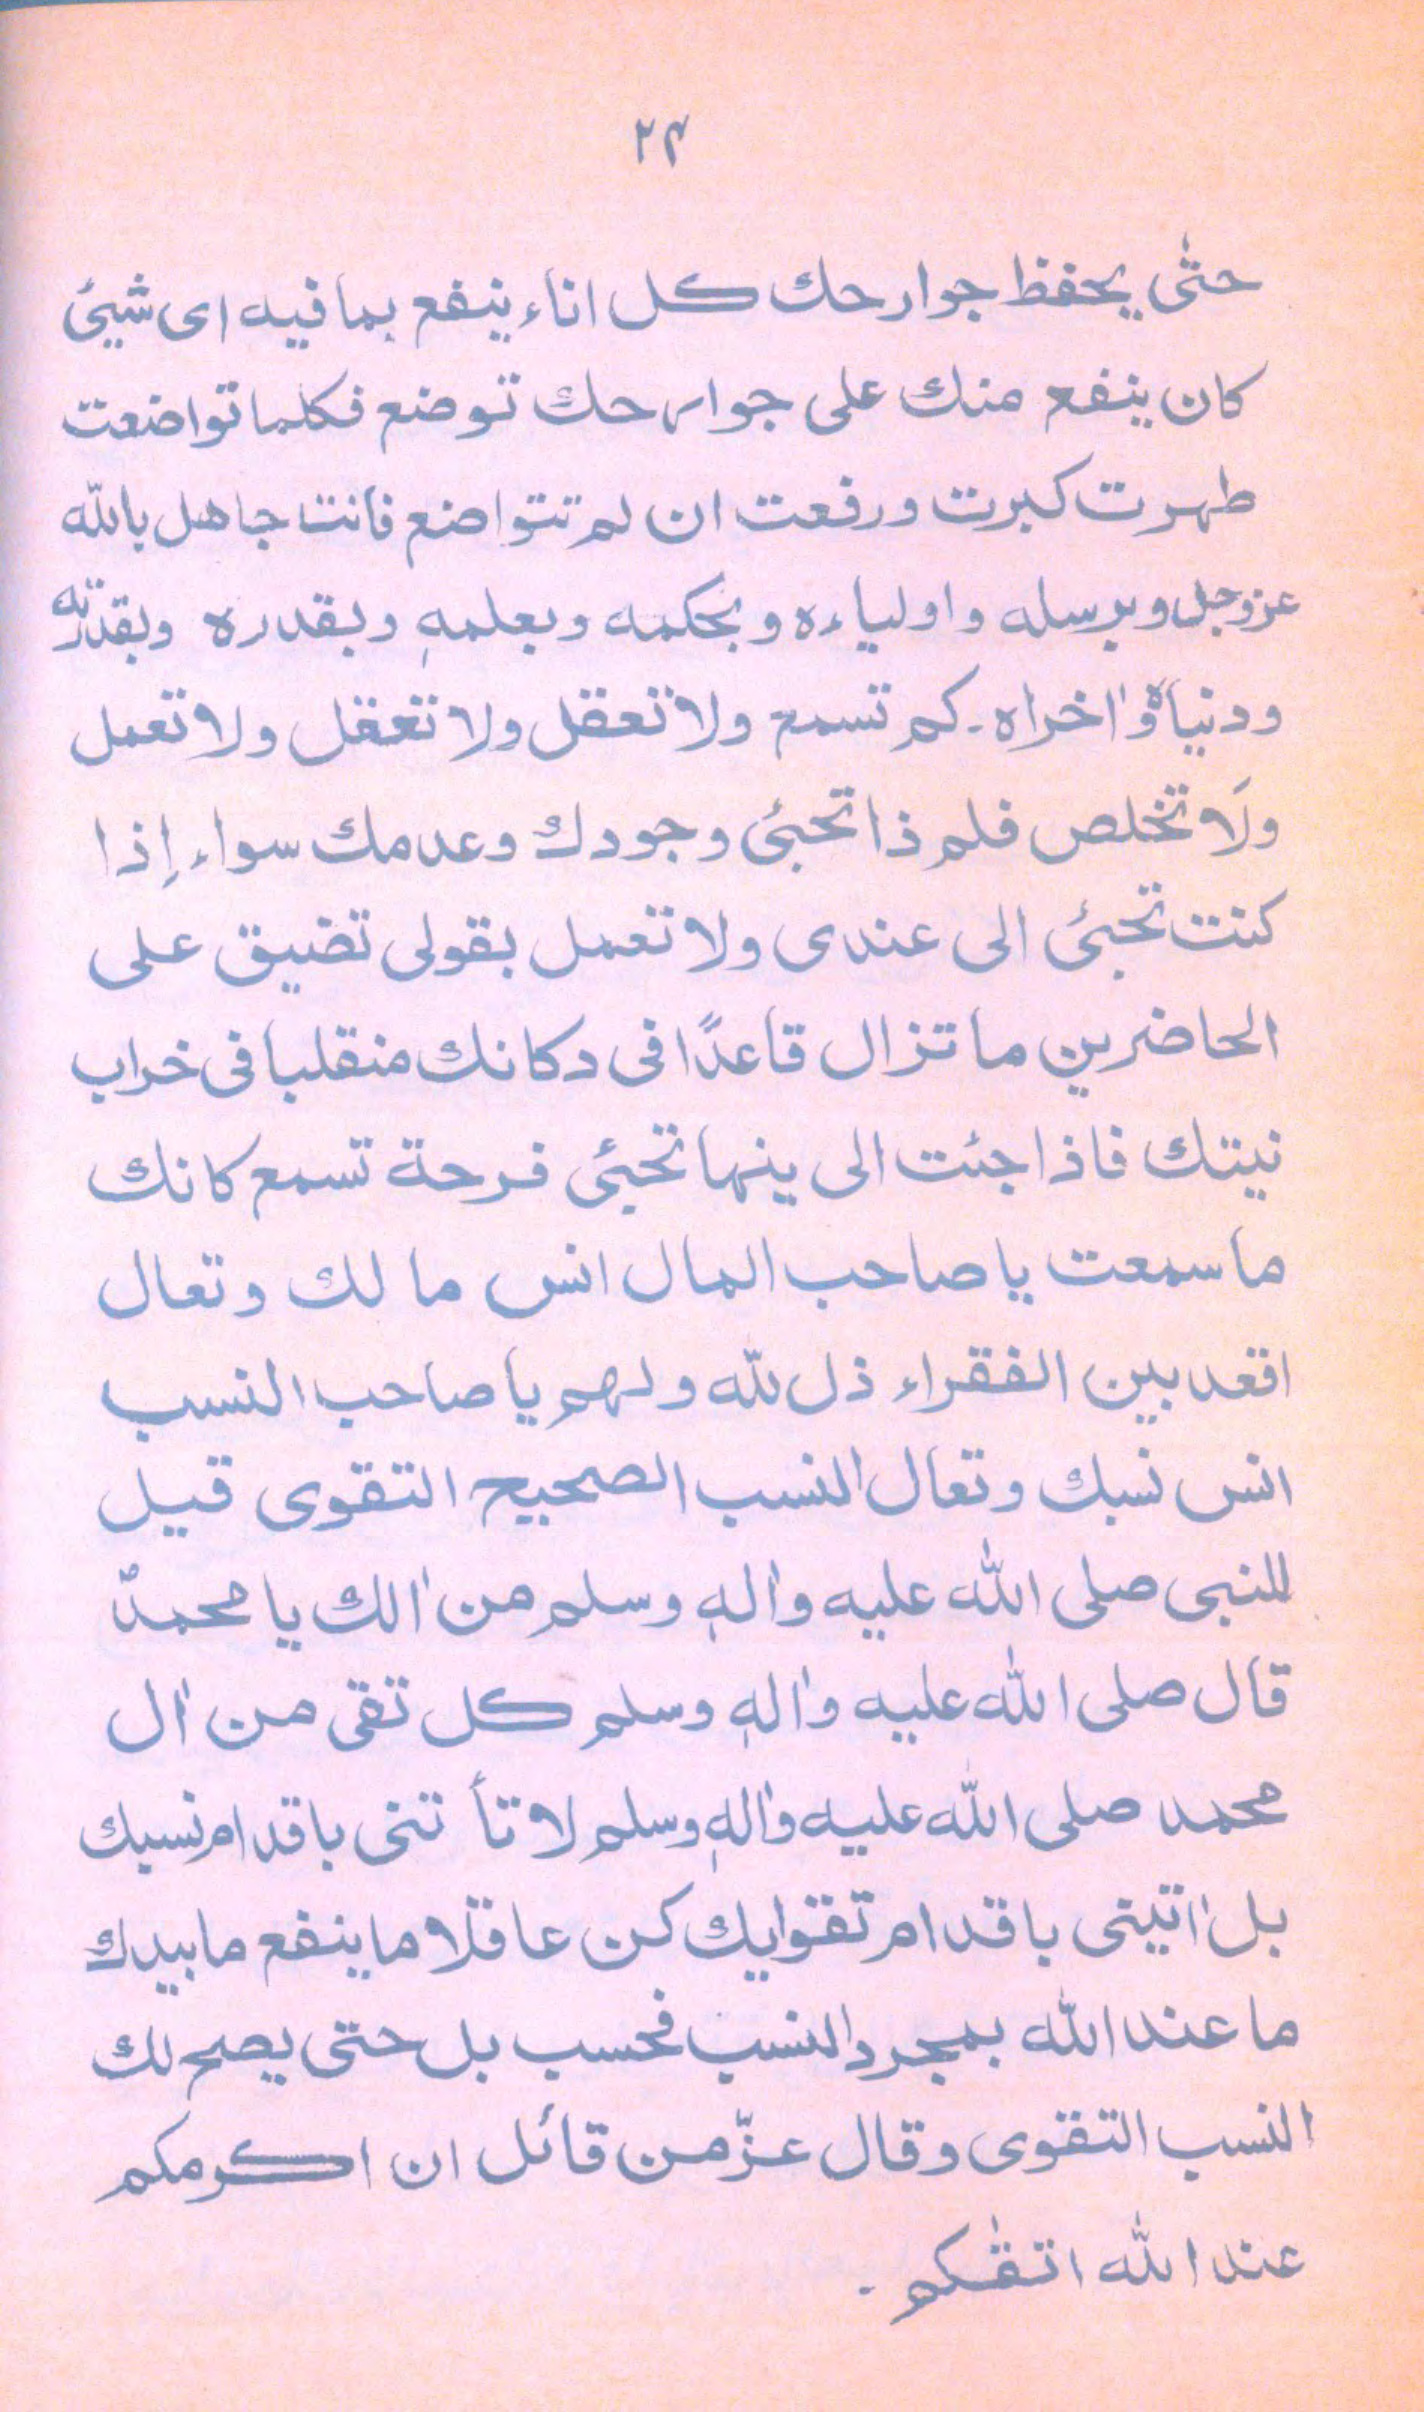 ۲۴
حتّٰى يحفظ جوارحك كل اناء ينفع بما فيه اى شيئ
كان ينفع منك على جوارحك توضع فكلما تواضعت
طهرت كبرت ورفعت ان لم تتواضع فانت جاهل بالله
عزوجل وبرسله واولياءه وبحكمه وبعلمهٖ وبقدره وبقدرته
ودنياهٗ واٰخراه ۔ كم تسمع ولا تعقل ولا تعقل ولا تعمل
ولَا تخلص فلم ذا تجيئ وجودك وعدمك سواء إذا
كنت تجيئ الى عندى ولا تعمل بقولى تضيق على
الحاضرين ما تزال قاعدًا فى دكانك منقلبا فى خراب
نيتك فاذا جئت الى ينها تجيئ فرحة تسمع كانك
ما سمعت يا صاحب المال انس ما لك وتعال
اقعد بين الفقراء ذل لله ولهم يا صاحب النسب
انس نسبك وتعال النسب الصحيح التقوى قيل
للنبى صلى الله عليه واٰلهٖ وسلم من اٰلك يا محمدٌ
قال صلى الله عليه واٰلهٖ وسلم كل تقى من اٰل
محمد صلى الله عليه واٰلهٖ وسلم لا تأ تنى باقدام نسبك
بل اٰتينى باقدام تقوايك كن عاقلا ما ينفع ما بيدك
ما عند الله بمجرد النسب فحسب بل حتى يصح لك
النسب التقوى وقال عزّ من قائل ان اكرمكم
عند الله اتقٰكم ۔